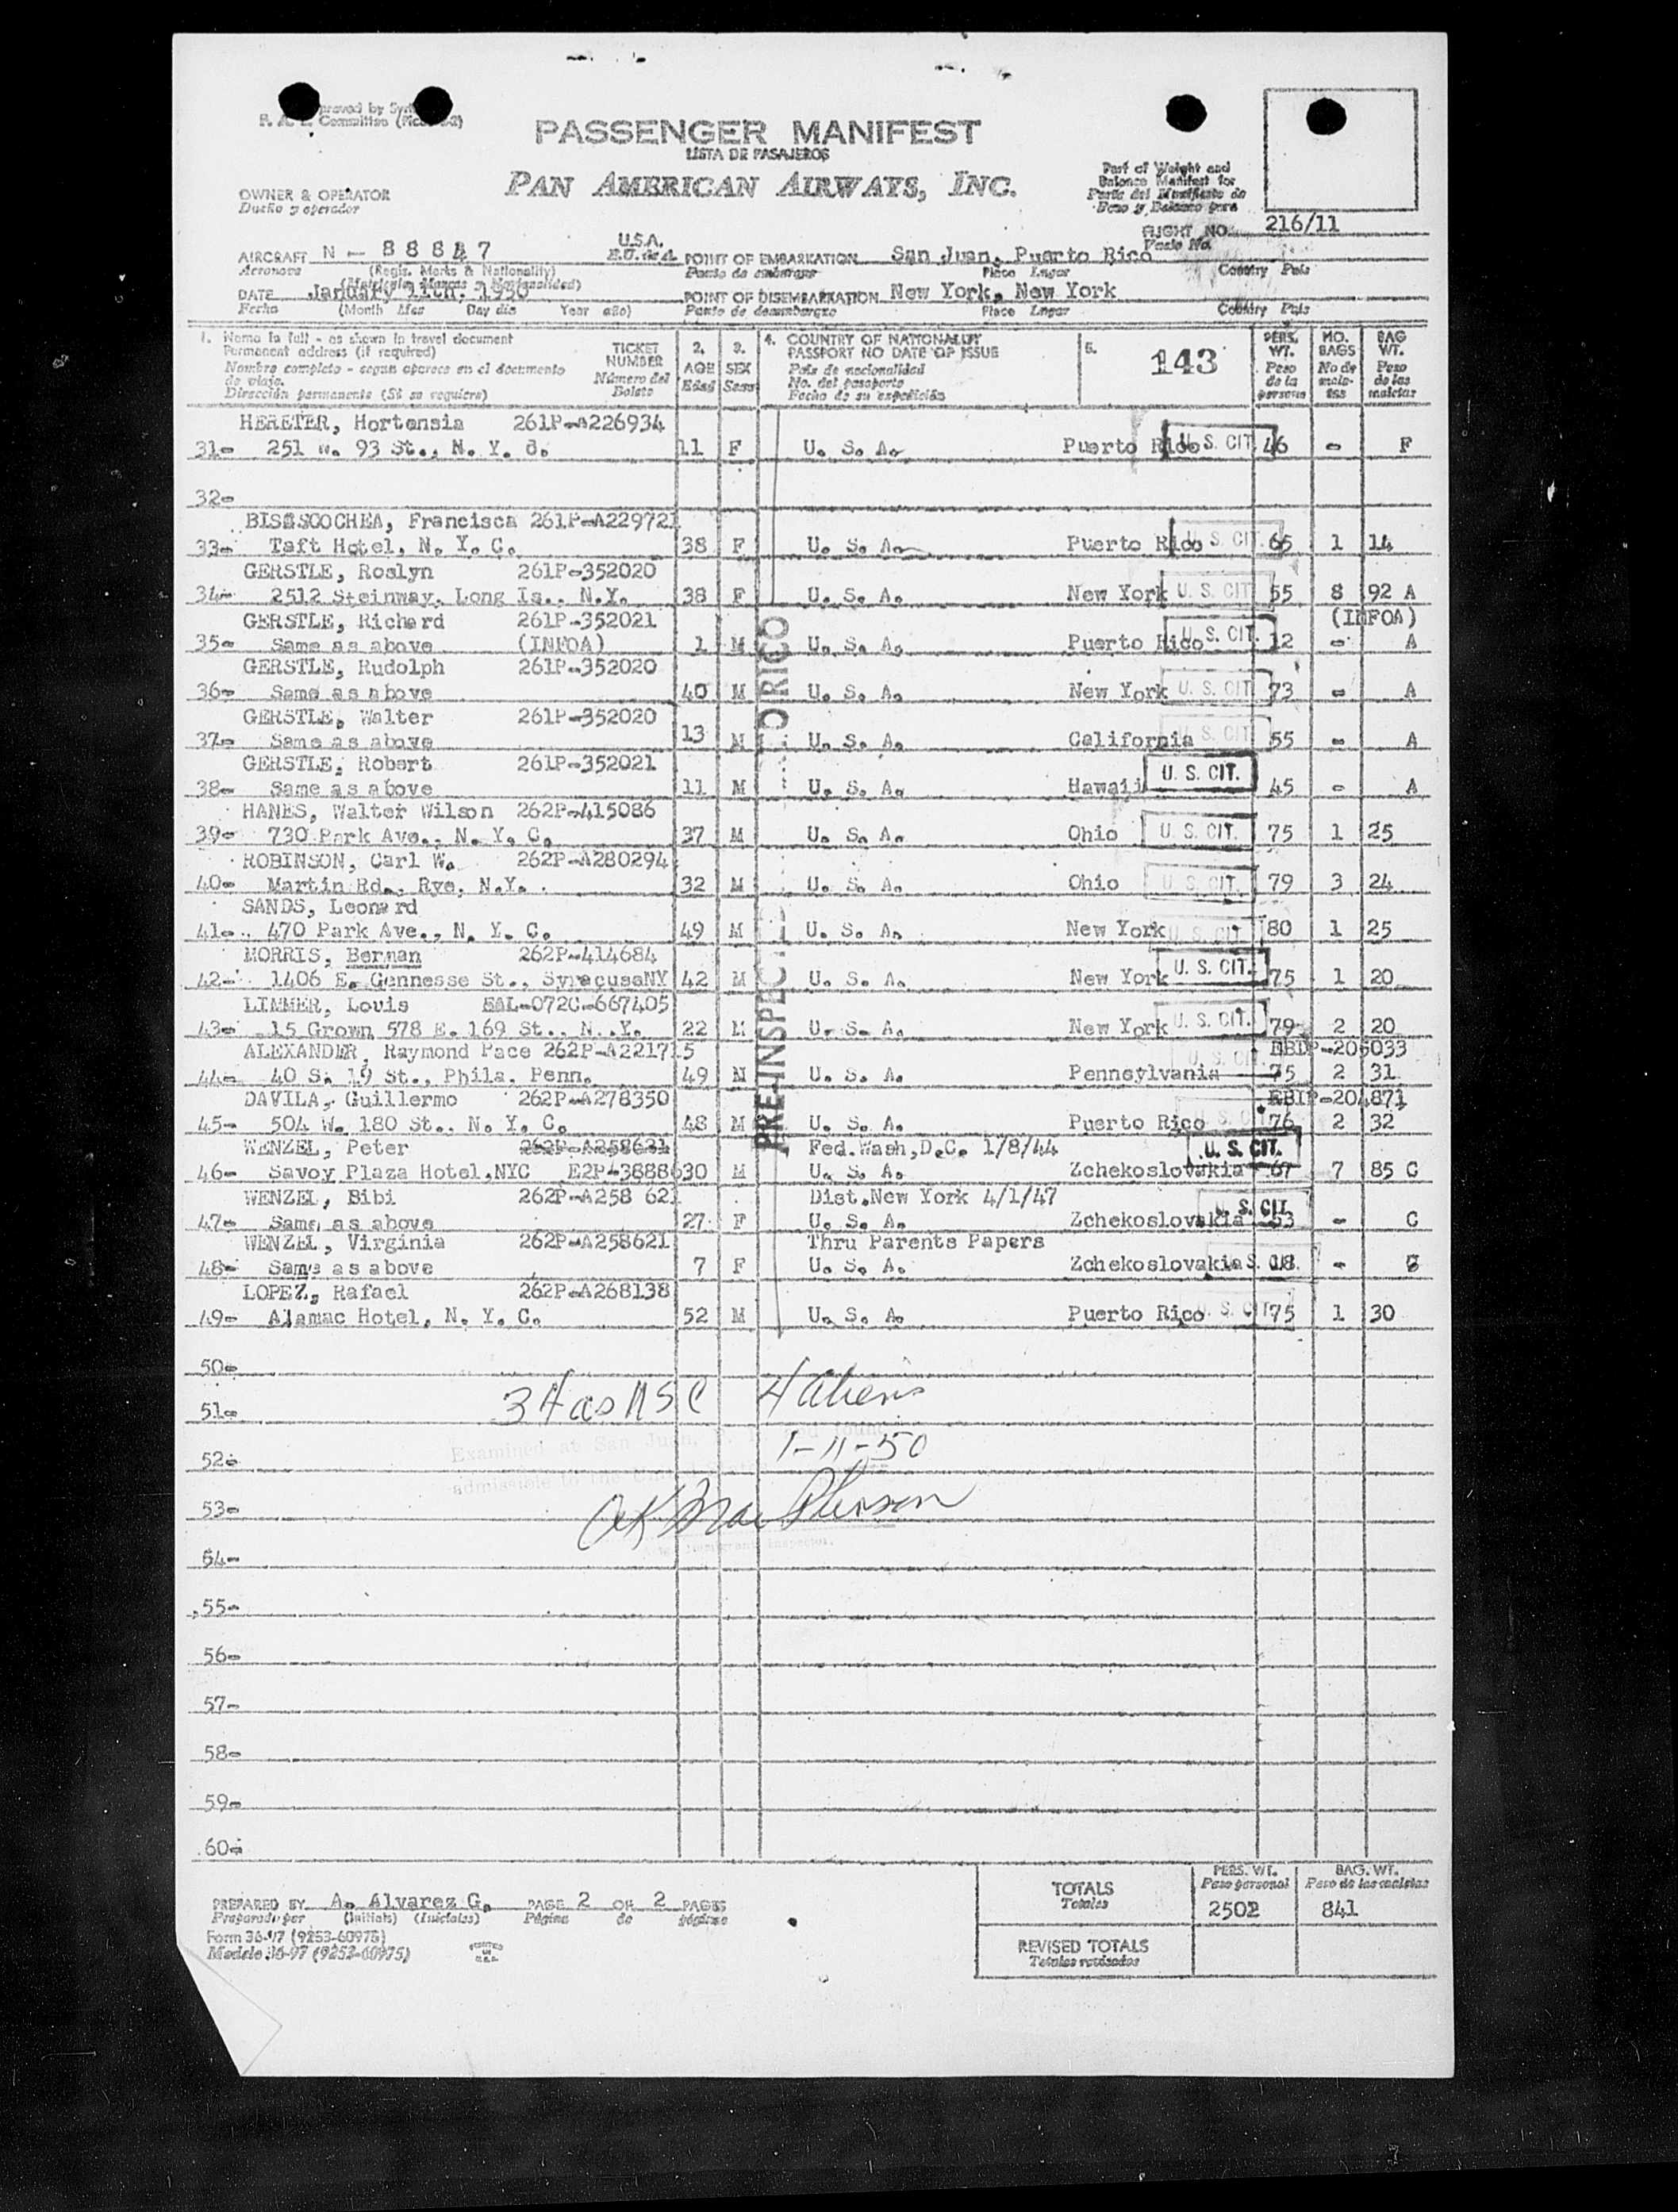 PASSENGER MANIFEST
LISTA DE PASAJEROS
PAN AMERICAN AIRWAYS, INC.
Part of Weight and
Balance Manifest for
Parte del Manifiesto de
Peso y Balance para
OWNER & OPERATOR
Dueño y operador
FLIGHT NO. 216/11
Vuelo No.
AIRCRAFT N - 88847 U.S.A. POINT OF EMBARKATION San Juan, Puerto Rico
Aeronave (Regis. Marks & Nationality) E.U. de A. Punto de embarque Place Lugar Country País
(Matrícula Marcas y Nacionalidad)
DATE January 11th, 1950 POINT OF DISEMBARKATION New York, New York
Fecha (Month Mes Day día Year año) Punto de desembarque Place Lugar Country País
1. Name in full - as shown in travel document
Permanent address (if required)
Nombre completo - según aparece en el documento
de viaje.
Dirección permanente (Si se requiere)
TICKET
NUMBER
Número del
Boleto
2.
AGE
Edad
3.
SEX
Sexo
4. COUNTRY OF NATIONALITY
PASSPORT NO DATE OF ISSUE
País de nacionalidad
No. del pasaporte
Fecha de su expedición
5. 143
PERS.
WT.
Peso
de la
persona
NO.
BAGS
No de
male-
tas
BAG
WT.
Peso
de las
maletas
HERETER, Hortensia 261P-A226934
31- 251 W. 93 St., N. Y. C. 11 F U. S. A. Puerto Rico U. S. CIT. 46 - F
32-
BISSSOOCHEA, Francisca 261P-A229721
33- Taft Hotel, N. Y. C. 38 F U. S. A. Puerto Rico U. S. CIT. 65 1 14
GERSTLE, Roslyn 261P-352020
34- 2512 Steinway, Long Is., N.Y. 38 F U. S. A. New York U. S. CIT. 55 8 92 A
GERSTLE, Richard 261P-352021 (INFOA)
35- Same as above (INFOA) 1 M U. S. A. Puerto Rico U. S. CIT. 12 - A
GERSTLE, Rudolph 261P-352020
36- Same as above 40 M U. S. A. New York U. S. CIT. 73 - A
GERSTLE, Walter 261P-352020
37- Same as above 13 M U. S. A. California U. S. CIT. 55 - A
GERSTLE, Robert 261P-352021
38- Same as above 11 M U. S. A. Hawaii U. S. CIT. 45 - A
HANES, Walter Wilson 262P-415086
39- 730 Park Ave., N. Y. C. 37 M U. S. A. Ohio U. S. CIT. 75 1 25
ROBINSON, Carl W. 262P-A280294
40- Martin Rd., Rye, N.Y. 32 M U. S. A. Ohio U. S. CIT. 79 3 24
SANDS, Leonard
41- 470 Park Ave., N. Y. C. 49 M U. S. A. New York U. S. CIT. 80 1 25
MORRIS, Berman 262P-414684
42- 1406 E. Gennesse St., SyracusaNY 42 M U. S. A. New York U. S. CIT. 75 1 20
LIMMER, Louis EAL-072C-667405
43- 15 Grown 578 E. 169 St., N. Y. 22 M U. S. A. New York U. S. CIT. 79 2 20
ALEXANDER, Raymond Pace 262P-A221715 EBDP-205033
44- 40 S. 19 St., Phila. Penn. 49 M U. S. A. Pennsylvania U. S. CIT. 75 2 31
DAVILA, Guillermo 262P-A278350 EBIP-204871
45- 504 W. 180 St., N. Y. C. 48 M U. S. A. Puerto Rico U. S. CIT. 76 2 32
WENZEL, Peter 262P-A258621 Fed.Wash,D.C. 1/8/44 U. S. CIT.
46- Savoy Plaza Hotel,NYC E2P-3888630 M U. S. A. Zchekoslovakia 67 7 85 C
WENZEL, Bibi 262P-A258 621 Dist.New York 4/1/47
47- Same as above 27 F U. S. A. Zchekoslovakia U. S. CIT. 53 - C
WENZEL, Virginia 262P-A258621 Thru Parents Papers
48- Same as above 7 F U. S. A. Zchekoslovakia U. S. CIT. 18 - C
LOPEZ, Rafael 262P-A268138
49- Alamac Hotel, N. Y. C. 52 M U. S. A. Puerto Rico U. S. CIT. 75 1 30
PRE-INSPEC RICO
50-
51- 34 as USC 4 aliens
Examined at San Juan, P. R. and found
52- 1-11-50
admissible to the United States
53- OK MacPherson
Immigrant Inspector.
54-
55-
56-
57-
58-
59-
60-
PREPARED BY A. Alvarez G. PAGE 2 OF 2 PAGES
Preparado por (Initials) (Iniciales) Página de páginas
Form 36-97 (9253-60975)
Modelo 36-97 (9253-60975)
PRINTED
IN
U.S.A.
PERS. WT. BAG. WT.
Peso personal Peso de las maletas
TOTALS 2502 841
Totales
REVISED TOTALS
Totales revisados